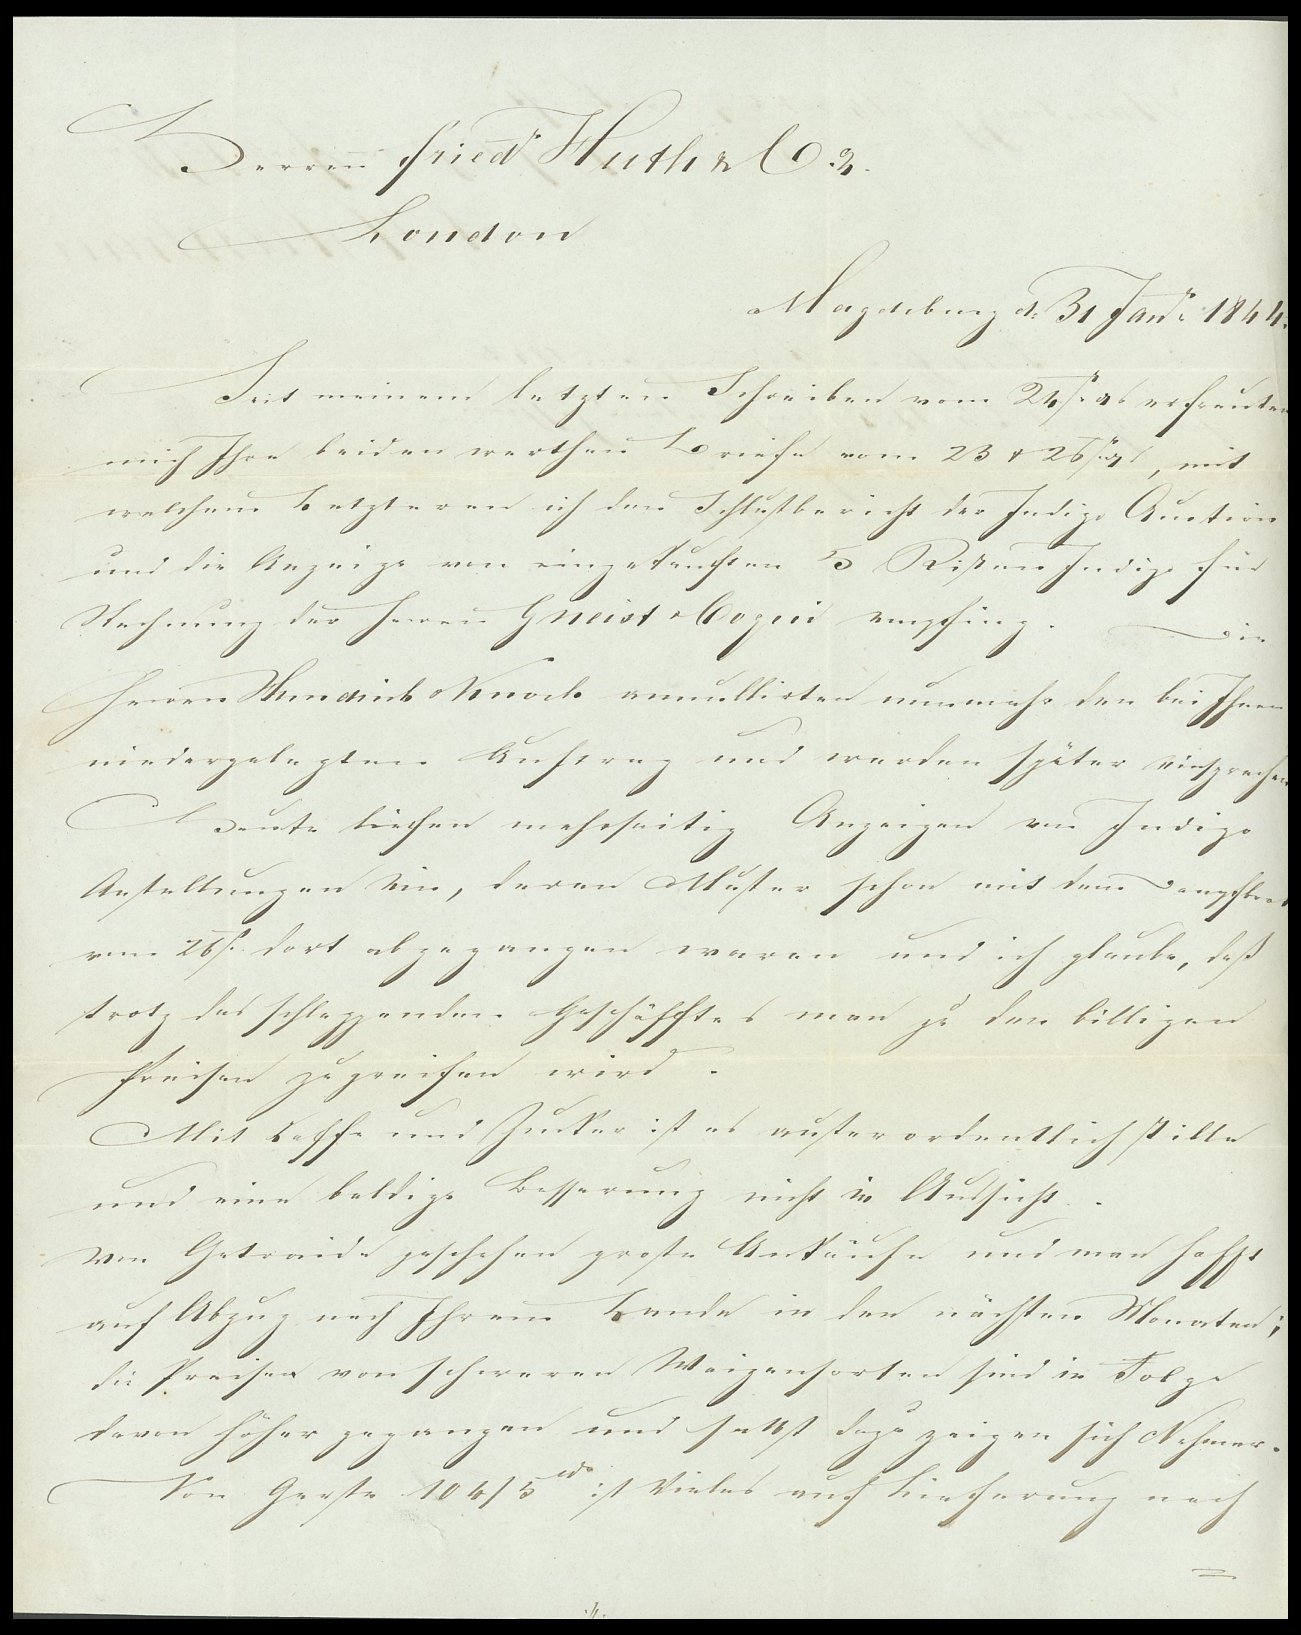 Herren Fried. Huth & Co.
London
Magdeburg d. 31 Jan. 1844.
Seit meinem letzten Schreiben vom 24 erfreuten
mich Ihre beiden werthen Briefe vom 23 & 26, mit
welchem Letzteren ich den Schlußbericht der Indigo Auction
und die Anzeige von eingekauften 5 Kisten Indigo für
Rechnung der Herren Gneist & empfing. Die
Herren & Knoch annullirten nunmehr den bei Ihnen
niedergelegten Auftrag und werden später
Heute liefen mehrseitig Anzeigen von Indigo
Anstellungen ein, deren Muster schon mit dem Dampfboot
vom 26 dort abgegangen waren und ich glaube, daß
trotz des schleppenden Geschäfftes man zu den billigen
Preisen zugreifen wird.
Mit Caffe und Zucker ist es außerordentlich stille
und eine baldige Besserung nicht in Aussicht.
Von Getraide geschehen große Ankäufe und man hofft
auf Abzug nach Ihrem Lande in den nächsten Monaten;
die Preise von schweren Weizensorten sind in Folge
davon höher gegangen und selbst dazu zeigen sich Nehmer.
Von Gerste 104/5 ist Vieles auf Lieferung nach